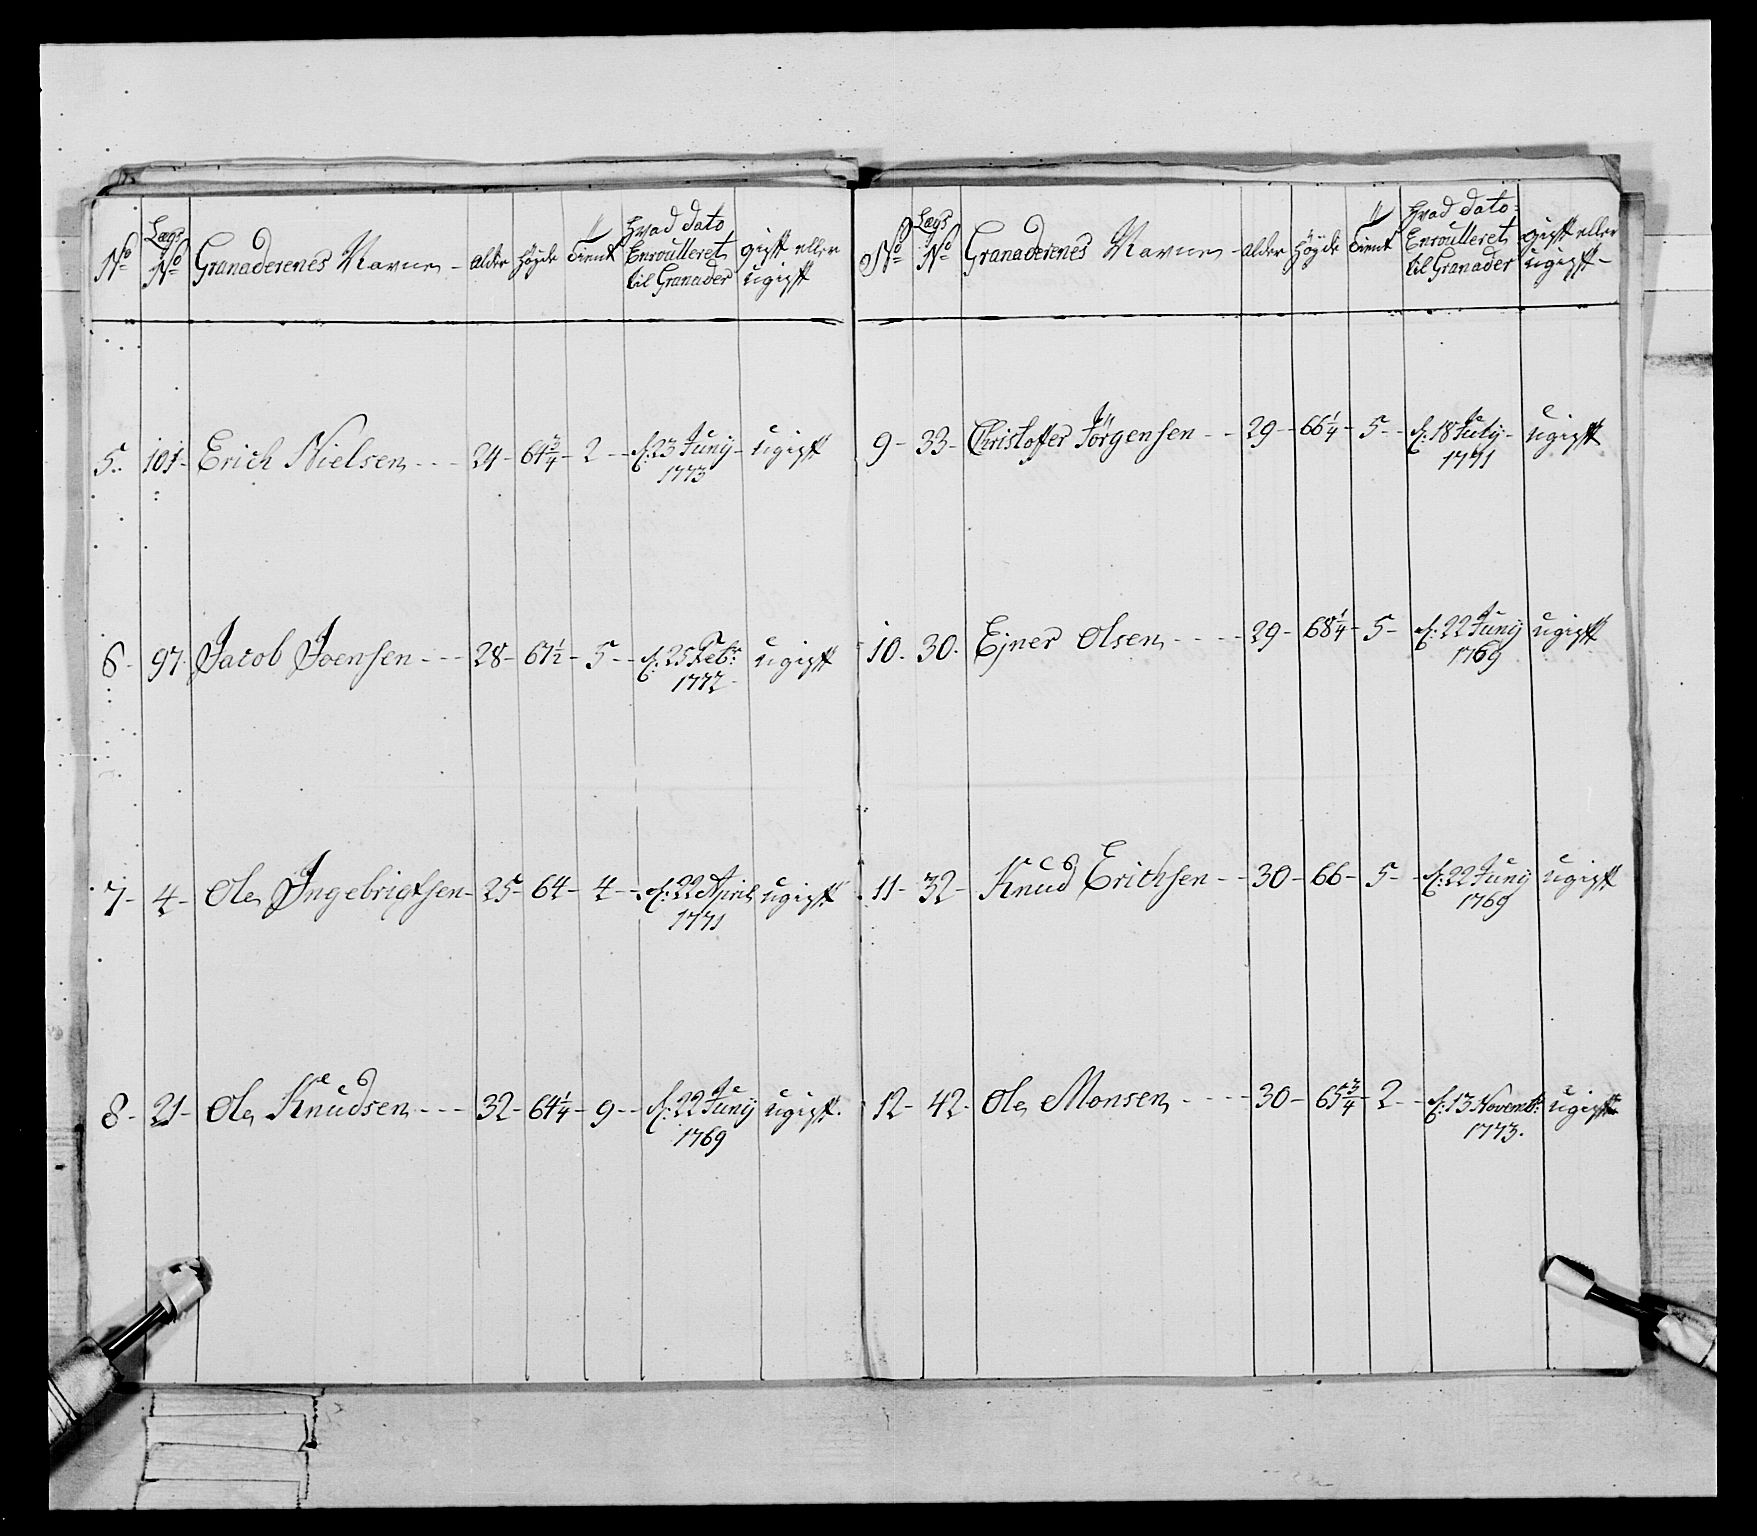 No Lægs No Granaderenes Navne - alder högde tient hvad dato Enroulleret til Granader gift eller ugift
5. 101- Erich Nielsen - - - 24- 64 3/4- 2 - d: 23 Juny 1773 - ugift
6- 97 Jacob Joensen - - - 28- 67 1/2- 5- - d: 25 Febr: 1772- ugift
7- 4- Ole Ingebrigtsen- 25- 64- 4- - d: 22 April 1771 ugift
8- 21- Ole Knudsen - - - 32- 64 1/4- 9- - d: 22 Juny 1769 ugift.
No Lægs No Granaderenes Navne - alder höyde tient hvad dato Enroulleret til Granader gift eller ugift-
9- 33- Christoffer Jörgensen - - 29- 66 1/4- 5- - d: 18 July 1771 - ugift
10- 30. Ejner Olsen - - - - 29- 68 1/4- 5- - d: 22 Juny 1769 ugift
11- 32- Knud Erichsen - - 30- 66- 5- - d: 22 Juny 1769 ugift
12- 42- Ole Monsen - - - - 30- 65 3/4- 2- - d: 13 Novemb: 1773. ugift